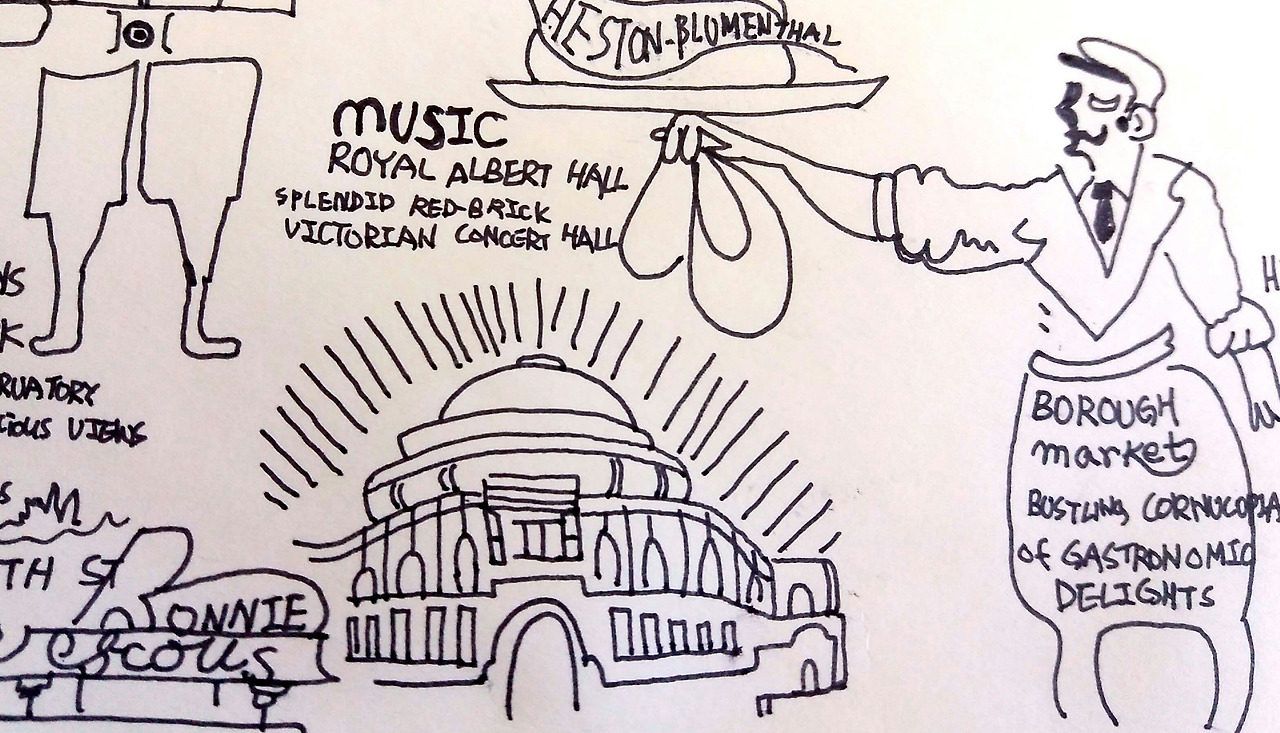 HESTON-BLUMENTHAL
MUSIC
ROYAL ALBERT HALL
SPLENDID RED-BRICK
VICTORIAN CONCERT HALL
VIEWS
TH ST
ONNIE
Scous
BOROUGH
market
BUSTLING CORNUCOPIA
of GASTRONOMIC
DELIGHTS